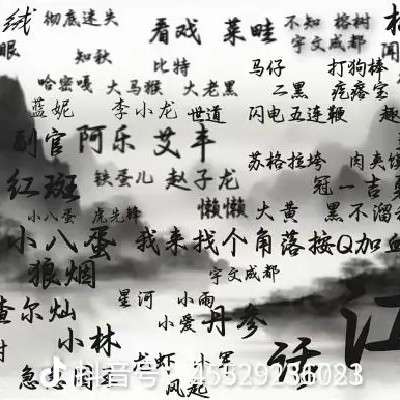 绒 彻底迷失 看戏 菜畦 不知 榕树
眼 知秋 比特 宇文成都
哈密嘎 大马猴 大老黑 马仔 打狗棒
蓝妮 李小龙 世道 二黑 疙瘩宝
闪电五连鞭
副官 阿乐 艾丰
苏格拉垮 肉夹馍
红斑 铁蛋儿 赵子龙 冠一吉
小八蛋 虎先锋 懒懒 大黄 黑不溜
小八蛋 我来找个角落按Q加血
狼烟 宇文成都
查尔灿 星河 小雨
小爱 丹参
小林 江
龙虾 小军 话
风起
抖音号：45529236023